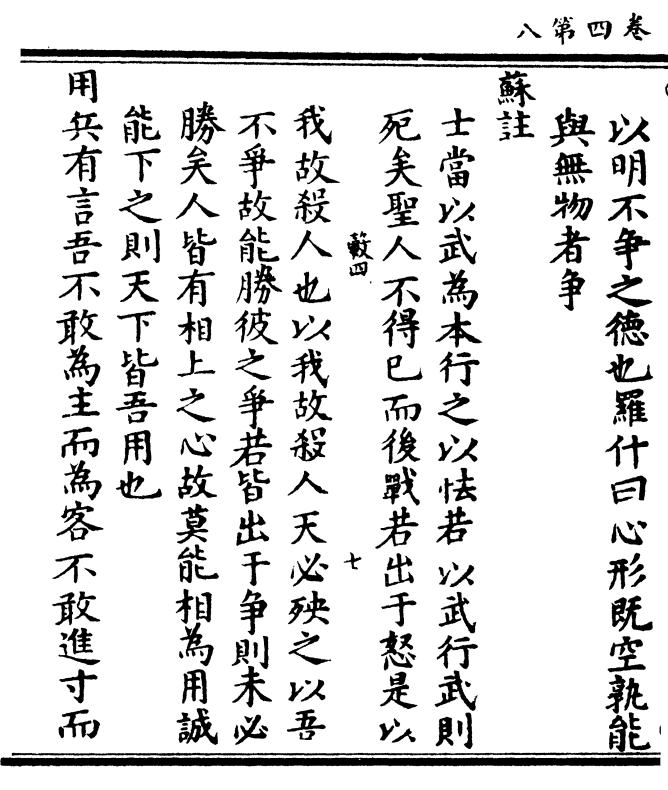 卷四第八
以明不争之德也羅什曰心形既空孰能
與無物者争
蘇註
士當以武為本行之以怯若以武行武則
死矣聖人不得已而後戰若出于怒是以
我故殺人也以我故殺人天必殃之以吾
不爭故能勝彼之爭若皆出于争則未必
勝矣人皆有相上之心故莫能相為用誠
能下之則天下皆吾用也
用兵有言吾不敢為主而為客不敢進寸而
四
七